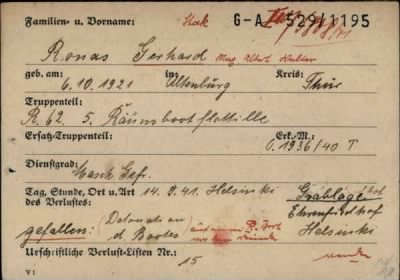 Familien- u. Vorname: G-A 529/1195
Ronas Gerhard
geb. am: in: Kreis:
6.10.1921 Altenburg Thür
Truppenteil:
R. 62. 5. Räumbootflottille
Ersatz-Truppenteil: Erk.-M.:
O. 1936/40 T
Dienstgrad:
Masch. Gefr.
Tag, Stunde, Ort u. Art 14.9.41 Helsinki Grablage:
des Verlustes: Ehrenfriedhof
gefallen: (Detonation Helsinki
d. Bootes)
Urschriftliche Verlust-Listen Nr.: 15
V 1